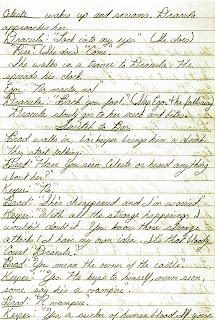 Celeste wakes up and screams. Dracula
approaches her.
Dracula: "Look into my eyes". (She does)
"Rise". (She does) "Come".
She walks in a trance to Dracula. He
spreads his cloak.
Egor: "No master, no!"
Dracula: "Back you fool". (Slaps Egor & he falls away)
Dracula slowly goes to her neck and bites.
Switch to Bar
Brad walks in, bar keeper brings him a drink.
They start talking.
Brad: "Have you seen Celeste or heard anything
about her?"
Keeper: "No."
Brad: "She's disappeared and I'm worried."
Keeper: "With all the strange happenings I
wouldn't doubt it. You know those strange
attacks. I have my own idea. It's that bloody
Count Dracula."
Brad: "You mean the owner of the castle".
Keeper: "Yes. He keeps to himself, never seen,
some say he's a vampire."
Brad: "A vampire".
Keeper: "Yes a sucker of human blood. He goes